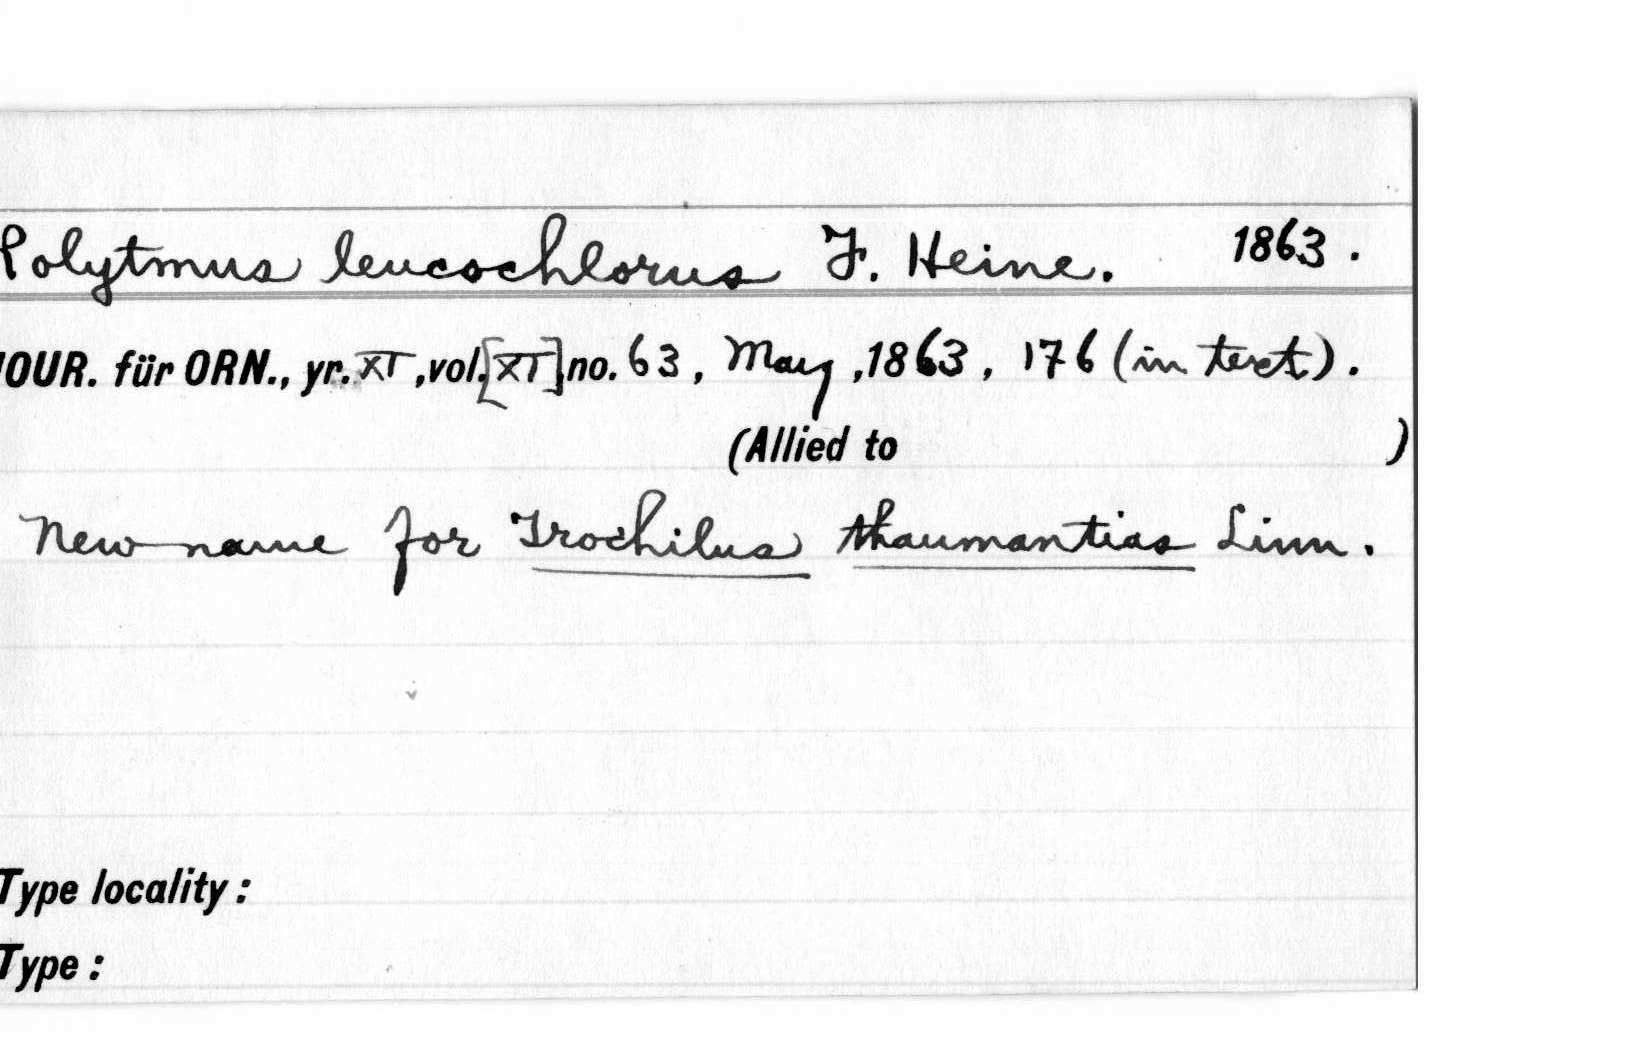 Polytmus leucochlorus F. Heine. 1863.
JOUR. für ORN., yr. XI, vol. [XI] no. 63, May, 1863, 176 (in text).
(Allied to )
New name for Trochilus thaumantias Linn.
Type locality:
Type: